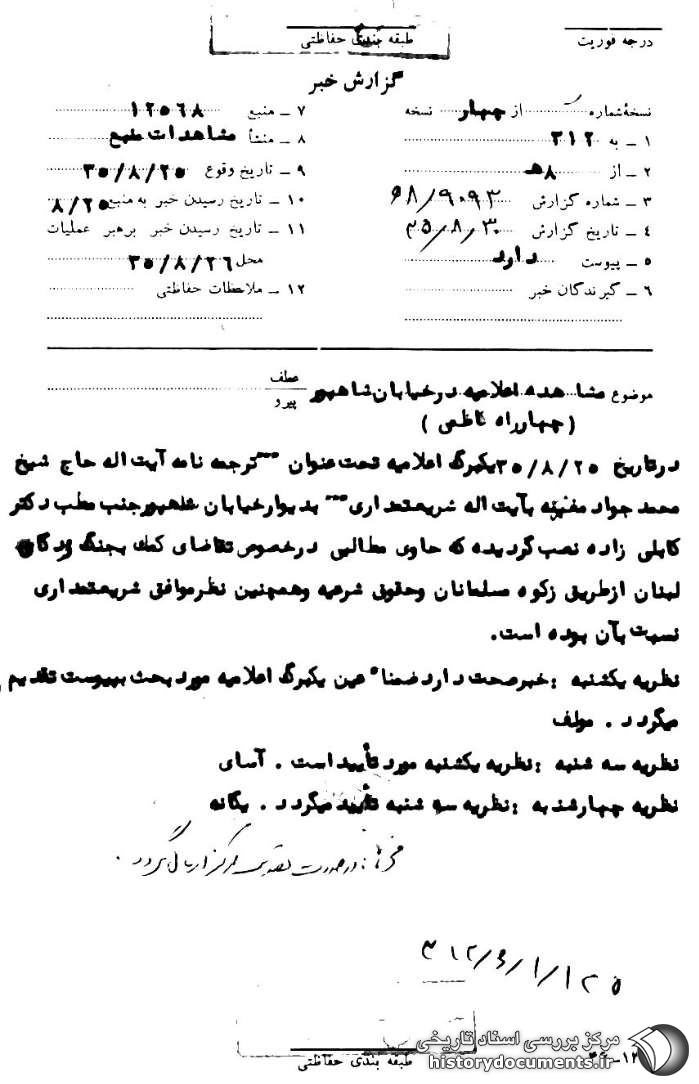 درجه فوریت
طبقه بندی حفاظتی
گزارش خبر
نسخه شماره از چهار نسخه
۱ - به ۳۱۲
۲ - از ۸ هـ
۳ - شماره گزارش ۹۰۹۳/
۴ - تاریخ گزارش ۳۵/۸/۳۰
۵ - پیوست دارد
۶ - گیرندگان خبر
۷ - منبع ۱۲۵۶۸
۸ - منشأ مشاهدات منبع
۹ - تاریخ وقوع ۳۵/۸/۲۵
۱۰ - تاریخ رسیدن خبر به منبع ۸/۲۵
۱۱ - تاریخ رسیدن خبر برهبر عملیات
محل ۳۵/۸/۲۶
۱۲ - ملاحظات حفاظتی
موضوع مشاهده اعلامیه در خیابان شاهپور
عطف
پیرو
(چهارراه کاظمی)
در تاریخ ۳۵/۸/۲۵ یکبرگ اعلامیه تحت عنوان """ترجمه نامه آیت اله حاج شیخ
محمد جواد مغنیه بآیت اله شریعتمداری""" بدیوار خیابان شاهپور جنب مطب دکتر
کابلی زاده نصب گردیده که حاوی مطالبی در خصوص تقاضای کمک بجنگ زدگان
لبنان از طریق زکوه مسلمانان وحقوق شرعیه وهمچنین نظر موافق شریعتمداری
نسبت بآن بوده است.
نظریه یکشنبه : خبر صحت دارد ضمنا" عین یکبرگ اعلامیه مورد بحث بپیوست تقدیم
میگردد . مولف
نظریه سه شنبه : نظریه یکشنبه مورد تأیید است . آسای
نظریه چهارشنبه : نظریه سه شنبه تأیید میگردد . یگانه
در صورت
۳۱۲/
طبقه بندی حفاظتی
مرکز بررسی اسناد تاریخی
historydocuments.ir